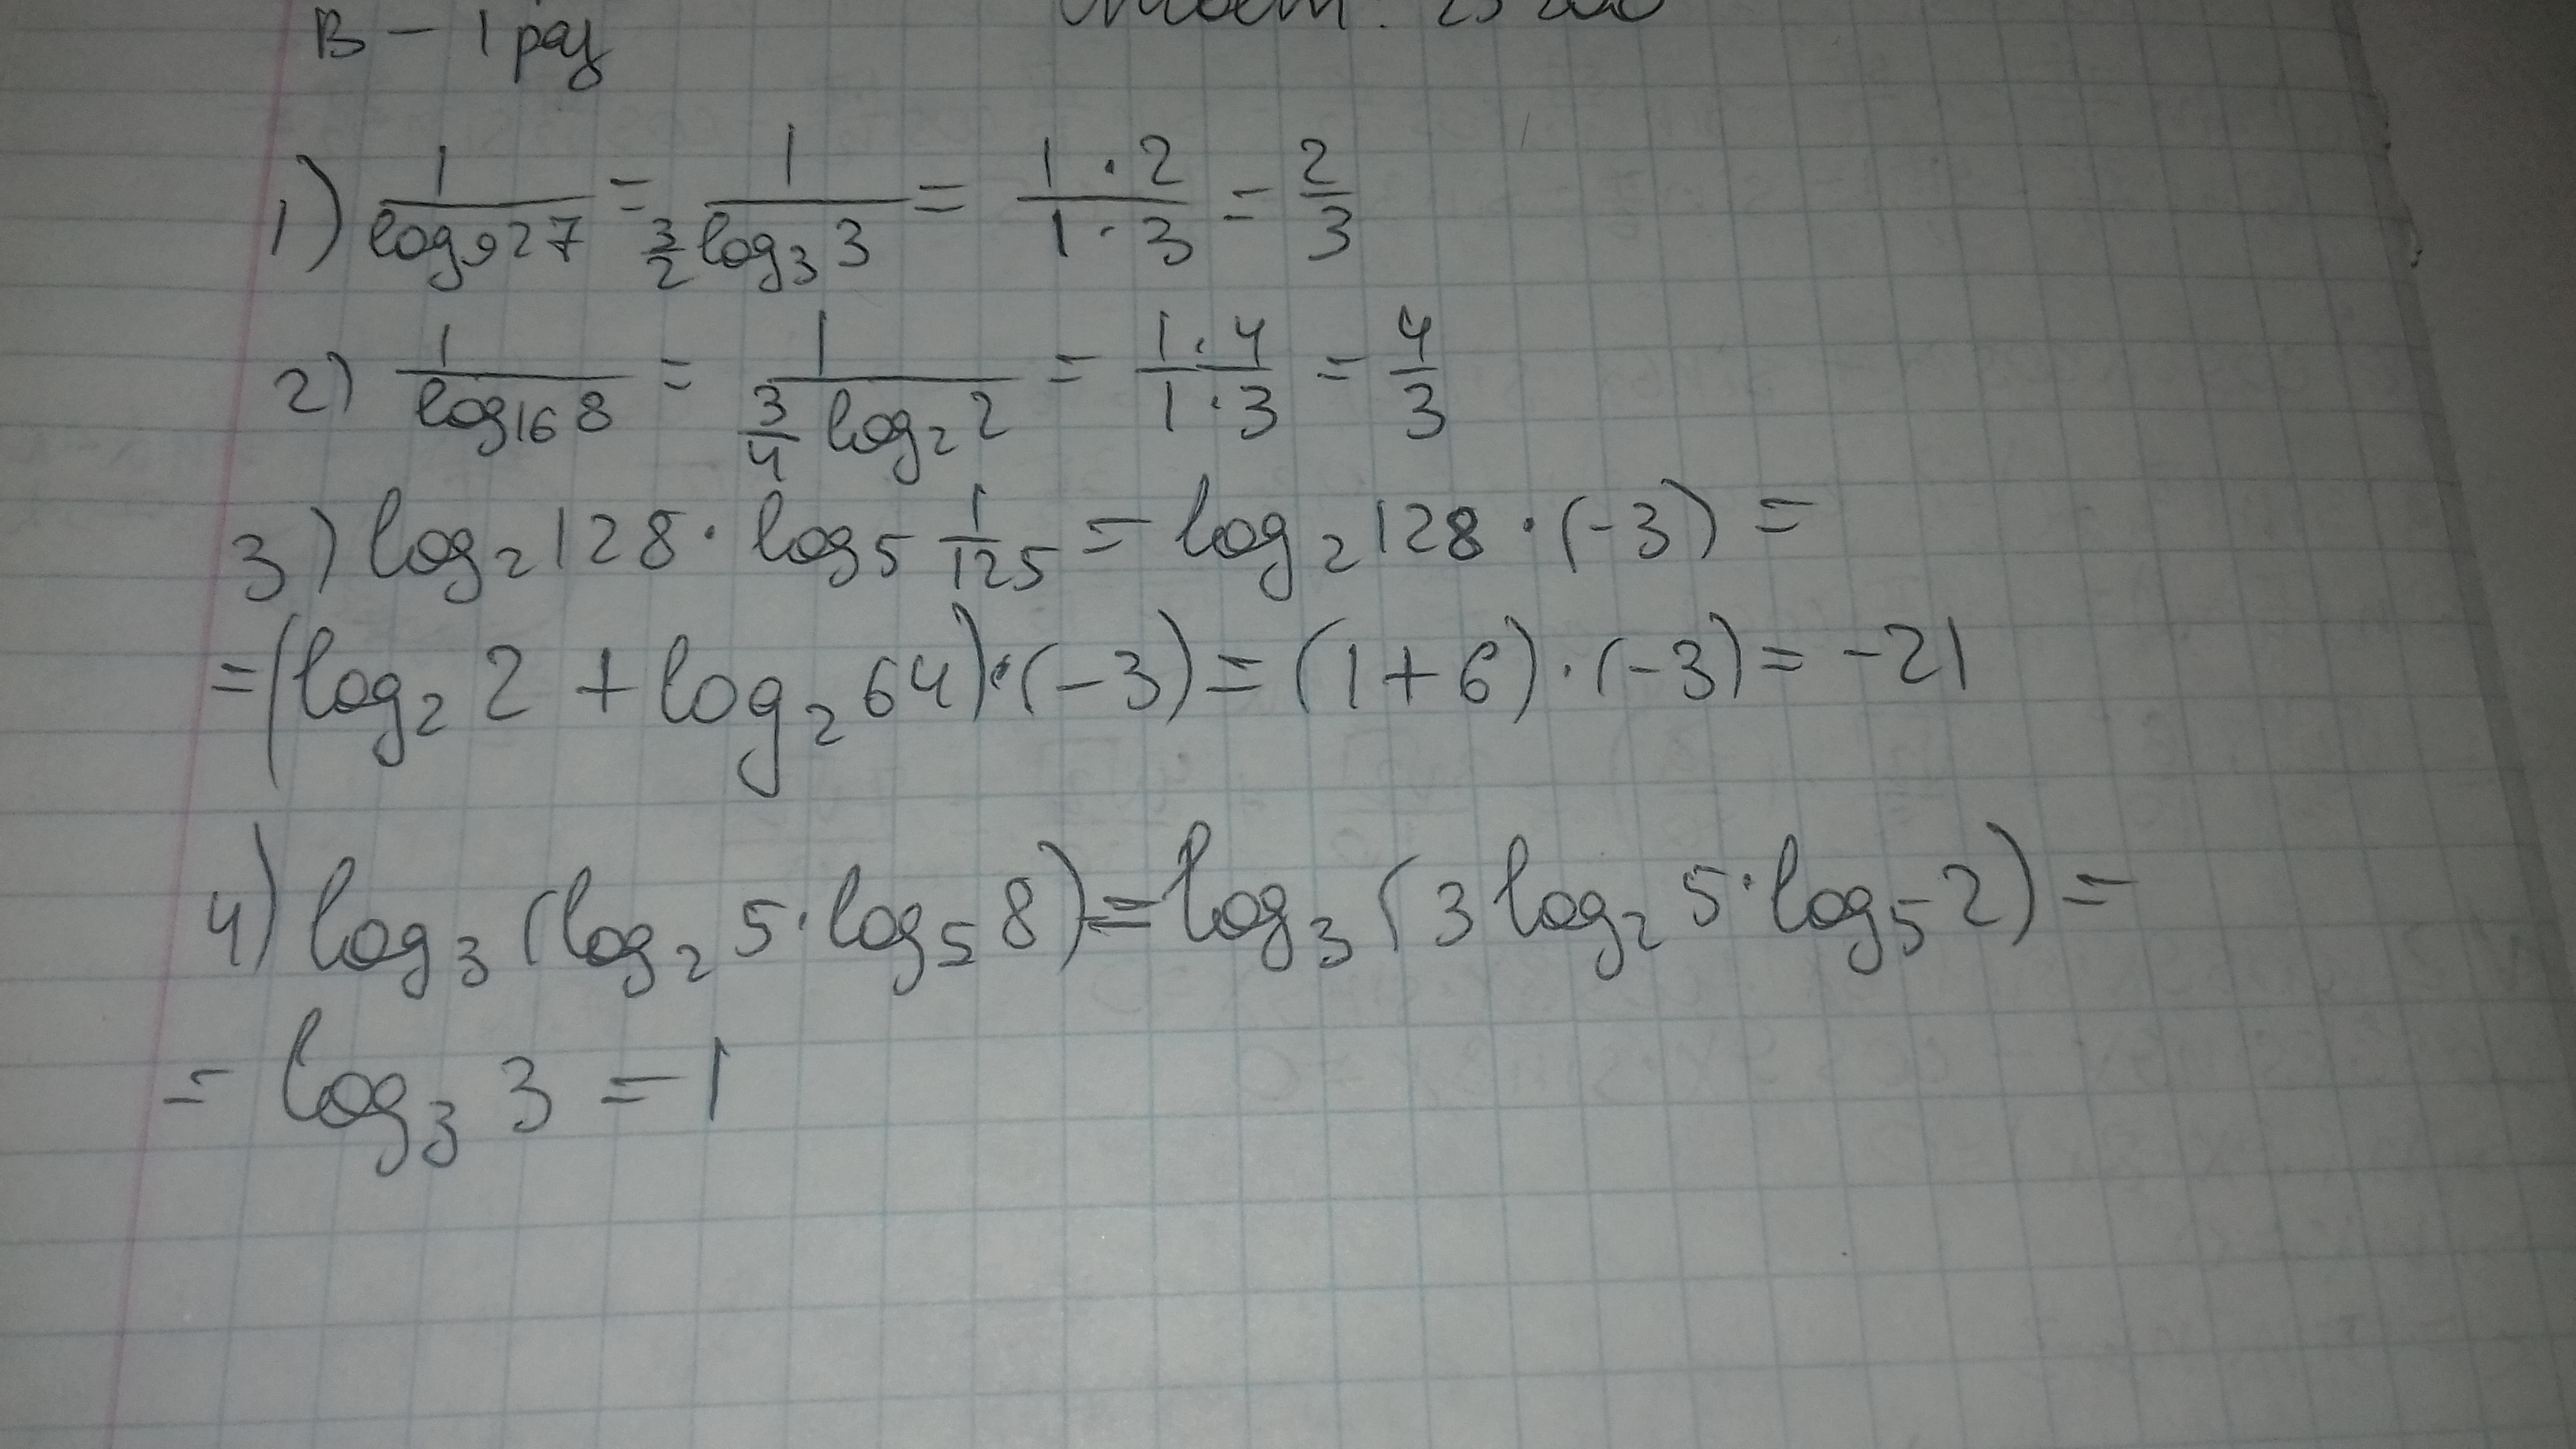 В – 1 раз
1) 1/log₉27 = 1/(3/2 log₃3) = (1·2)/(1·3) = 2/3
2) 1/log₁₆8 = 1/(3/4 log₂2) = (1·4)/(1·3) = 4/3
3) log₂128 · log₅ 1/125 = log₂128 · (-3) =
= (log₂2 + log₂64) · (-3) = (1+6) · (-3) = -21
4) log₃(log₂5 · log₅8) = log₃(3log₂5 · log₅2) =
= log₃3 = 1